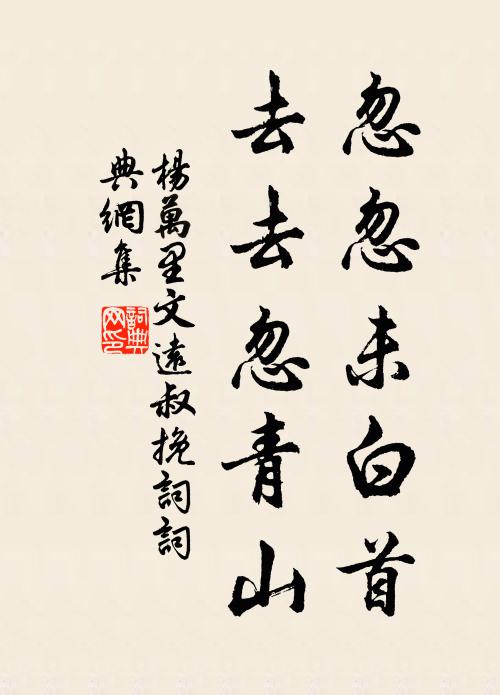 忽忽未白首
去去忽青山
楊萬里文遠叔挽詞詞
典網集
詞典
网印